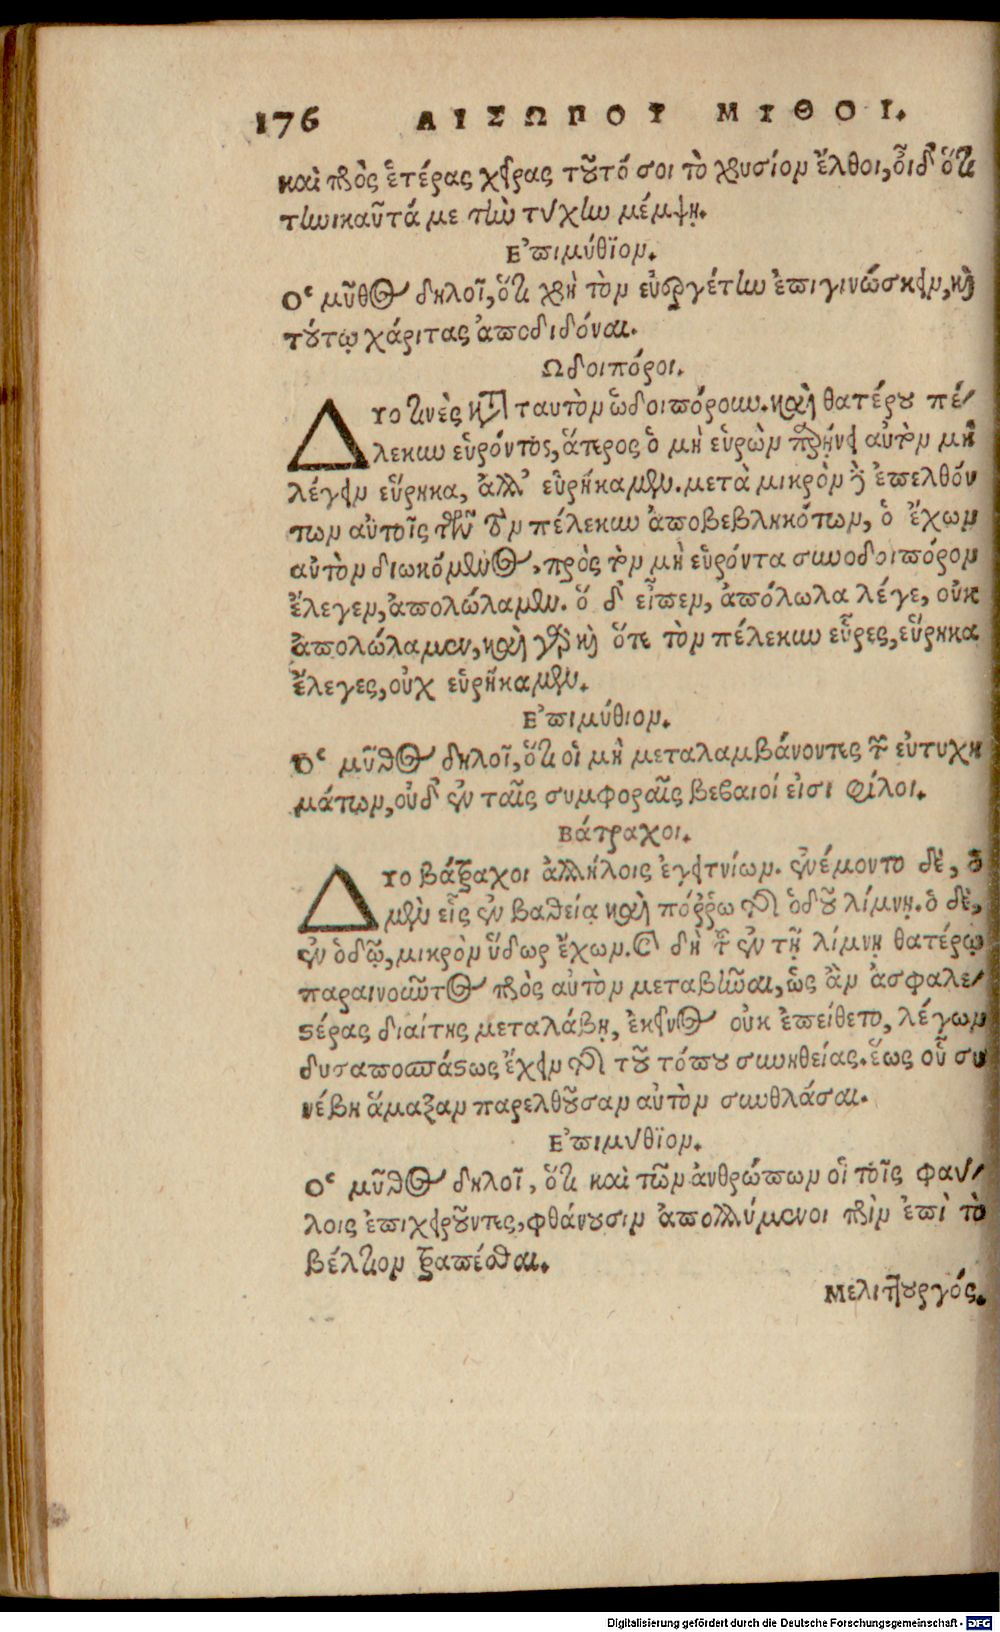 176 ΑΙΣΩΠΟΥ ΜΥΘΟΙ.
καὶ πρὸς ἑτέρας χεῖρας τοῦτό σοι τὸ χρυσίον ἔλθοι, οἶδ' ὅτι
τηνικαῦτά με τὴν τύχην μέμψῃ.
Ἐπιμύθϊον.
Ὁ μῦθος δηλοῖ, ὅτι χρὴ τὸν εὐεργέτην ἐπιγινώσκειν, καὶ
τούτῳ χάριτας ἀποδιδόναι.
Ὡδοιπόροι.
ΔΥο τινὲς κατὰ ταυτὸν ὡδοιπόρουν. καὶ θατέρου πέ-
λεκυν εὑρόντος, ἅτερος ὁ μὴ εὑρὼν παρῄνει αὐτὸν μὴ
λέγειν εὕρηκα, ἀλλ' εὑρήκαμεν. μετὰ μικρὸν δὲ ἐπελθόν
των αὐτοῖς τῶν τὸν πέλεκυν ἀποβεβληκότων, ὁ ἔχων
αὐτὸν διωκόμενος, πρὸς τὸν μὴ εὑρόντα συνοδοιπόρον
ἔλεγεν, ἀπολώλαμεν. ὅ δ' εἶπεν, ἀπόλωλα λέγε, οὐκ
ἀπολώλαμεν, καὶ γὰρ καὶ ὅτε τὸν πέλεκυν εὗρες, εὕρηκα
ἔλεγες, οὐχ εὑρήκαμεν.
Ἐπιμύθιον.
Ὁ μῦθος δηλοῖ, ὅτι οἱ μὴ μεταλαμβάνοντες τῶν εὐτυχη
μάτων, οὐδ' ἐν ταῖς συμφοραῖς βεβαιοί εἰσι φίλοι.
Βάτραχοι.
ΔΥο βάτραχοι ἀλλήλοις ἐγειτνίων. ἐνέμοντο δὲ, ὁ
μὲν εἷς ἐν βαθείᾳ καὶ πόῤῥω τῆς ὁδοῦ λίμνῃ. ὁ δὲ,
ἐν ὁδῷ, μικρὸν ὕδωρ ἔχων. καὶ δὴ τοῦ ἐν τῇ λίμνῃ θατέρῳ
παραινοῦντος πρὸς αὐτὸν μεταβῆναι, ὡς ἂν ἀσφαλε-
στέρας διαίτης μεταλάβῃ, ἐκεῖνος οὐκ ἐπείθετο, λέγων
δυσαποσπάστως ἔχειν τῆς τοῦ τόπου συνηθείας. ἕως οὗ συ
νέβη ἅμαξαν παρελθοῦσαν αὐτὸν συνθλάσαι.
Ἐπιμύθϊον.
Ὁ μῦθος δηλοῖ, ὅτι καὶ τῶν ἀνθρώπων οἱ τοῖς φαύ-
λοις ἐπιχειροῦντες, φθάνουσιν ἀπολλύμενοι πρὶν ἐπὶ τὸ
βέλτιον τραπέσθαι.
Μελιττουργός.
Digitalisierung gefördert durch die Deutsche Forschungsgemeinschaft - DFG